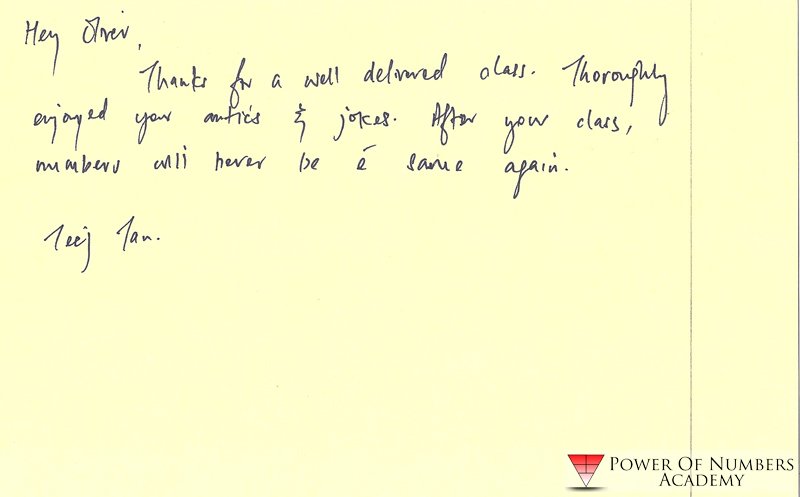 Hey Oliver,
Thanks for a well delivered class. Thoroughly
enjoyed your antics & jokes. After your class,
numbers will never be é same again.
Teej Tan.
POWER OF NUMBERS
ACADEMY